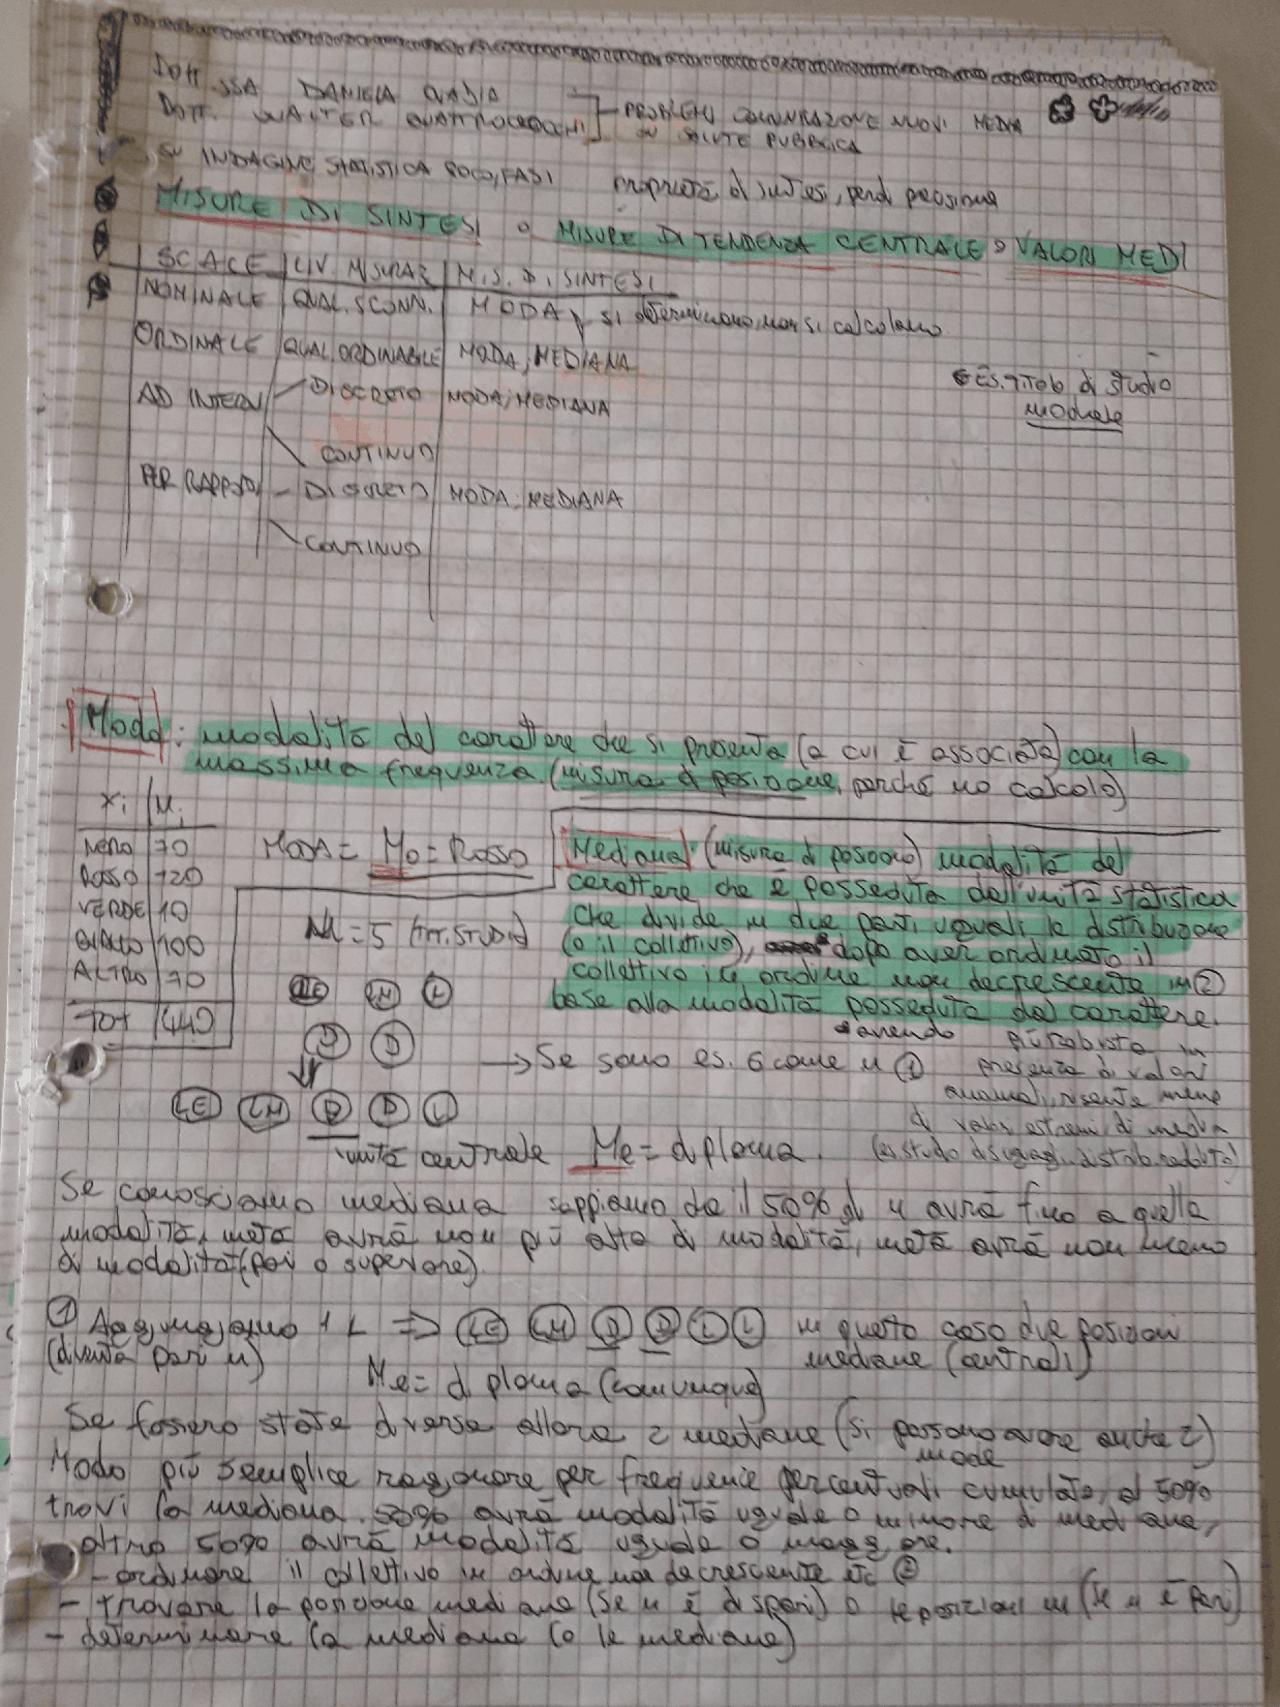 DOTT.SSA DANIELA
DOTT. WALTER QUATTROCIOCCHI - PROBLEMI COMUNICAZIONE NUOVI MEDIA
SU SALUTE PUBBLICA
SU INDAGINE STATISTICA 8000, FASI proprietà di sintesi, perdi
MISURE DI SINTESI o MISURE DI TENDENZA CENTRALE o VALORI MEDI
SCALE LIV. MISURAZ MIS. DI SINTESI
NOMINALE QUAL. SCONN. MODA si determinano, non si calcolano
ORDINALE QUAL. ORDINABILE MODA, MEDIANA
ES. titolo di studio
modale
AD INTERV DISCRETO MODA, MEDIANA
CONTINUO
PER RAPPORTI - DISCRETO MODA, MEDIANA
CONTINUO
Moda: modalità del carattere che si presenta (a cui è associata) con la
massima frequenza (misura di posizione, perché no calcolo)
xi ni
NERO 70
ROSSO 120
VERDE 10
BIANCO 100
ALTRO 70
TOT 440
MODA = Mo = ROSSO
Mediana: (misura di posizione) modalità del
carattere che è posseduta dall'unità statistica
che divide in due parti uguali la distribuzione
(o il collettivo), dopo aver ordinato il
collettivo in ordine non decrescente in ②
base alla modalità posseduta del carattere.
N = 5 (TIT. STUDIO)
LE LM L
D D
→ Se sono es. 6 come n ①
più robusta in
presenza di valori
anomali, risente meno
di valori estremi di media
(es studio disuguagl. distrib. reddito)
LE LM D D L
unità centrale Me = diploma.
Se conosciamo mediana sappiamo che il 50% di n avrà fino a quella
modalità, metà avrà non più alta di modalità, metà avrà non meno
di modalità (pari o superiore).
① Aggiungiamo 1 L ⇒ LE LM D D L L in questo caso due posizioni
(diventa pari n) mediane (centrali)
Me = diploma (comunque)
Se fossero state diverse allora 2 mediane (si possono avere anche 2)
mode
Modo più semplice ragionare per frequenze percentuali cumulate, al 50%
trovi la mediana. 50% avrà modalità uguale o minore di mediana,
altro 50% avrà modalità uguale o maggiore.
- ordinare il collettivo in ordine non decrescente etc ②
- trovare la posizione mediana (se n è dispari) o le posizioni m (se n è pari)
- determinare la mediana (o le mediane)